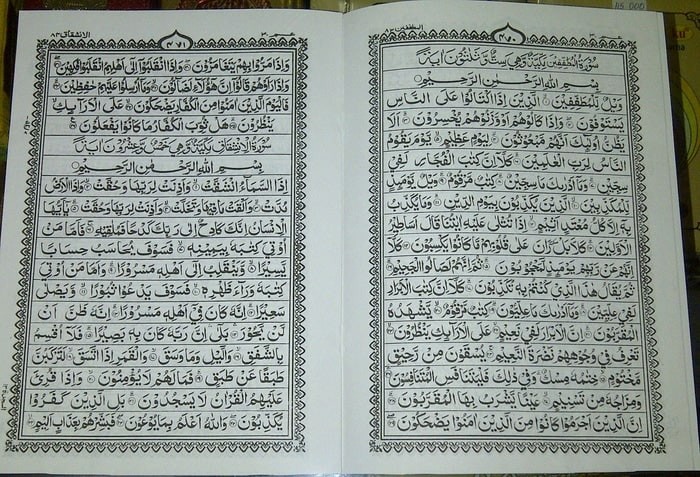 المطففين ٨٣
٤٧٠
سُورَةُ الْمُطَفِّفِينَ مَكِّيَّةٌ وَهِيَ سِتٌّ وَثَلٰثُونَ اٰيَةً
بِسْمِ اللّٰهِ الرَّحْمٰنِ الرَّحِيْمِ
وَيْلٌ لِّلْمُطَفِّفِيْنَ الَّذِيْنَ اِذَا اكْتَالُوْا عَلَى النَّاسِ
يَسْتَوْفُوْنَ وَاِذَا كَالُوْهُمْ اَوْ وَّزَنُوْهُمْ يُخْسِرُوْنَ اَلَا
يَظُنُّ اُولٰٓئِكَ اَنَّهُمْ مَّبْعُوْثُوْنَ لِيَوْمٍ عَظِيْمٍ يَّوْمَ يَقُوْمُ
النَّاسُ لِرَبِّ الْعٰلَمِيْنَ كَلَّآ اِنَّ كِتٰبَ الْفُجَّارِ لَفِيْ
سِجِّيْنٍ وَمَآ اَدْرٰىكَ مَا سِجِّيْنٌ كِتٰبٌ مَّرْقُوْمٌ وَيْلٌ يَّوْمَئِذٍ
لِّلْمُكَذِّبِيْنَ الَّذِيْنَ يُكَذِّبُوْنَ بِيَوْمِ الدِّيْنِ وَمَا يُكَذِّبُ
بِهٖٓ اِلَّا كُلُّ مُعْتَدٍ اَثِيْمٍ اِذَا تُتْلٰى عَلَيْهِ اٰيٰتُنَا قَالَ اَسَاطِيْرُ
الْاَوَّلِيْنَ كَلَّا بَلْ رَانَ عَلٰى قُلُوْبِهِمْ مَّا كَانُوْا يَكْسِبُوْنَ كَلَّآ
اِنَّهُمْ عَنْ رَّبِّهِمْ يَوْمَئِذٍ لَّمَحْجُوْبُوْنَ ثُمَّ اِنَّهُمْ لَصَالُوا الْجَحِيْمِ
ثُمَّ يُقَالُ هٰذَا الَّذِيْ كُنْتُمْ بِهٖ تُكَذِّبُوْنَ كَلَّآ اِنَّ كِتٰبَ الْاَبْرَارِ
لَفِيْ عِلِّيِّيْنَ وَمَآ اَدْرٰىكَ مَا عِلِّيُّوْنَ كِتٰبٌ مَّرْقُوْمٌ يَّشْهَدُهُ
الْمُقَرَّبُوْنَ اِنَّ الْاَبْرَارَ لَفِيْ نَعِيْمٍ عَلَى الْاَرَآئِكِ يَنْظُرُوْنَ
تَعْرِفُ فِيْ وُجُوْهِهِمْ نَضْرَةَ النَّعِيْمِ يُسْقَوْنَ مِنْ رَّحِيْقٍ
مَّخْتُوْمٍ خِتٰمُهٗ مِسْكٌ وَفِيْ ذٰلِكَ فَلْيَتَنَافَسِ الْمُتَنَافِسُوْنَ
وَمِزَاجُهٗ مِنْ تَسْنِيْمٍ عَيْنًا يَّشْرَبُ بِهَا الْمُقَرَّبُوْنَ
اِنَّ الَّذِيْنَ اَجْرَمُوْا كَانُوْا مِنَ الَّذِيْنَ اٰمَنُوْا يَضْحَكُوْنَ
الانشقاق ٨٤
٤٧١
وَاِذَا مَرُّوْا بِهِمْ يَتَغَامَزُوْنَ وَاِذَا انْقَلَبُوْٓا اِلٰٓى اَهْلِهِمُ انْقَلَبُوْا فَكِهِيْنَ
وَاِذَا رَاَوْهُمْ قَالُوْٓا اِنَّ هٰٓؤُلَآءِ لَضَآلُّوْنَ وَمَآ اُرْسِلُوْا عَلَيْهِمْ حٰفِظِيْنَ
فَالْيَوْمَ الَّذِيْنَ اٰمَنُوْا مِنَ الْكُفَّارِ يَضْحَكُوْنَ عَلَى الْاَرَآئِكِ
يَنْظُرُوْنَ هَلْ ثُوِّبَ الْكُفَّارُ مَا كَانُوْا يَفْعَلُوْنَ
سُورَةُ الْاِنْشِقَاقِ مَكِّيَّةٌ وَهِيَ خَمْسٌ وَعِشْرُونَ اٰيَةً
بِسْمِ اللّٰهِ الرَّحْمٰنِ الرَّحِيْمِ
اِذَا السَّمَآءُ انْشَقَّتْ وَاَذِنَتْ لِرَبِّهَا وَحُقَّتْ وَاِذَا الْاَرْضُ
مُدَّتْ وَاَلْقَتْ مَا فِيْهَا وَتَخَلَّتْ وَاَذِنَتْ لِرَبِّهَا وَحُقَّتْ يٰٓاَيُّهَا
الْاِنْسَانُ اِنَّكَ كَادِحٌ اِلٰى رَبِّكَ كَدْحًا فَمُلٰقِيْهِ فَاَمَّا مَنْ
اُوْتِيَ كِتٰبَهٗ بِيَمِيْنِهٖ فَسَوْفَ يُحَاسَبُ حِسَابًا
يَّسِيْرًا وَّيَنْقَلِبُ اِلٰٓى اَهْلِهٖ مَسْرُوْرًا وَاَمَّا مَنْ اُوْتِيَ
كِتٰبَهٗ وَرَآءَ ظَهْرِهٖ فَسَوْفَ يَدْعُوْا ثُبُوْرًا وَّيَصْلٰى
سَعِيْرًا اِنَّهٗ كَانَ فِيْٓ اَهْلِهٖ مَسْرُوْرًا اِنَّهٗ ظَنَّ اَنْ
لَّنْ يَّحُوْرَ بَلٰٓى اِنَّ رَبَّهٗ كَانَ بِهٖ بَصِيْرًا فَلَآ اُقْسِمُ
بِالشَّفَقِ وَالَّيْلِ وَمَا وَسَقَ وَالْقَمَرِ اِذَا اتَّسَقَ لَتَرْكَبُنَّ
طَبَقًا عَنْ طَبَقٍ فَمَا لَهُمْ لَا يُؤْمِنُوْنَ وَاِذَا قُرِئَ
عَلَيْهِمُ الْقُرْاٰنُ لَا يَسْجُدُوْنَ بَلِ الَّذِيْنَ كَفَرُوْا
يُكَذِّبُوْنَ وَاللّٰهُ اَعْلَمُ بِمَا يُوْعُوْنَ فَبَشِّرْهُمْ بِعَذَابٍ اَلِيْمٍ